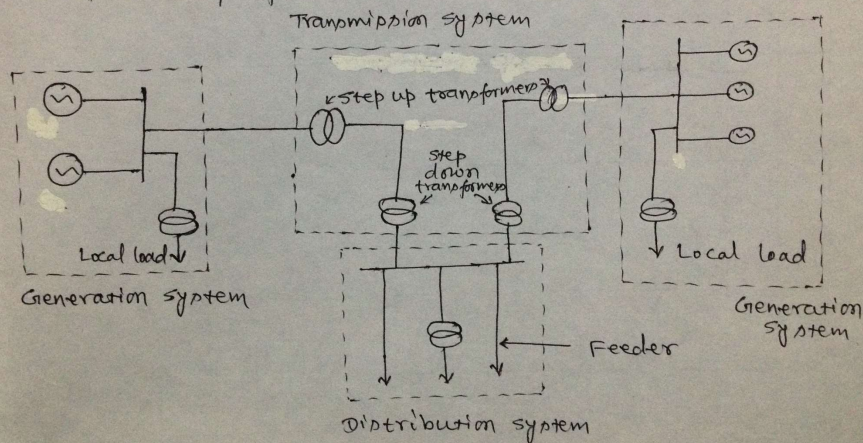 Transmission system
step up transformers
step
down
transformers
Local load
Generation system
Local load
Generation
system
Feeder
Distribution system